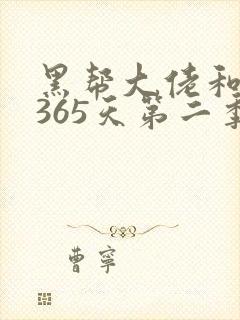 黑帮大佬和
365天第二季
曹寧